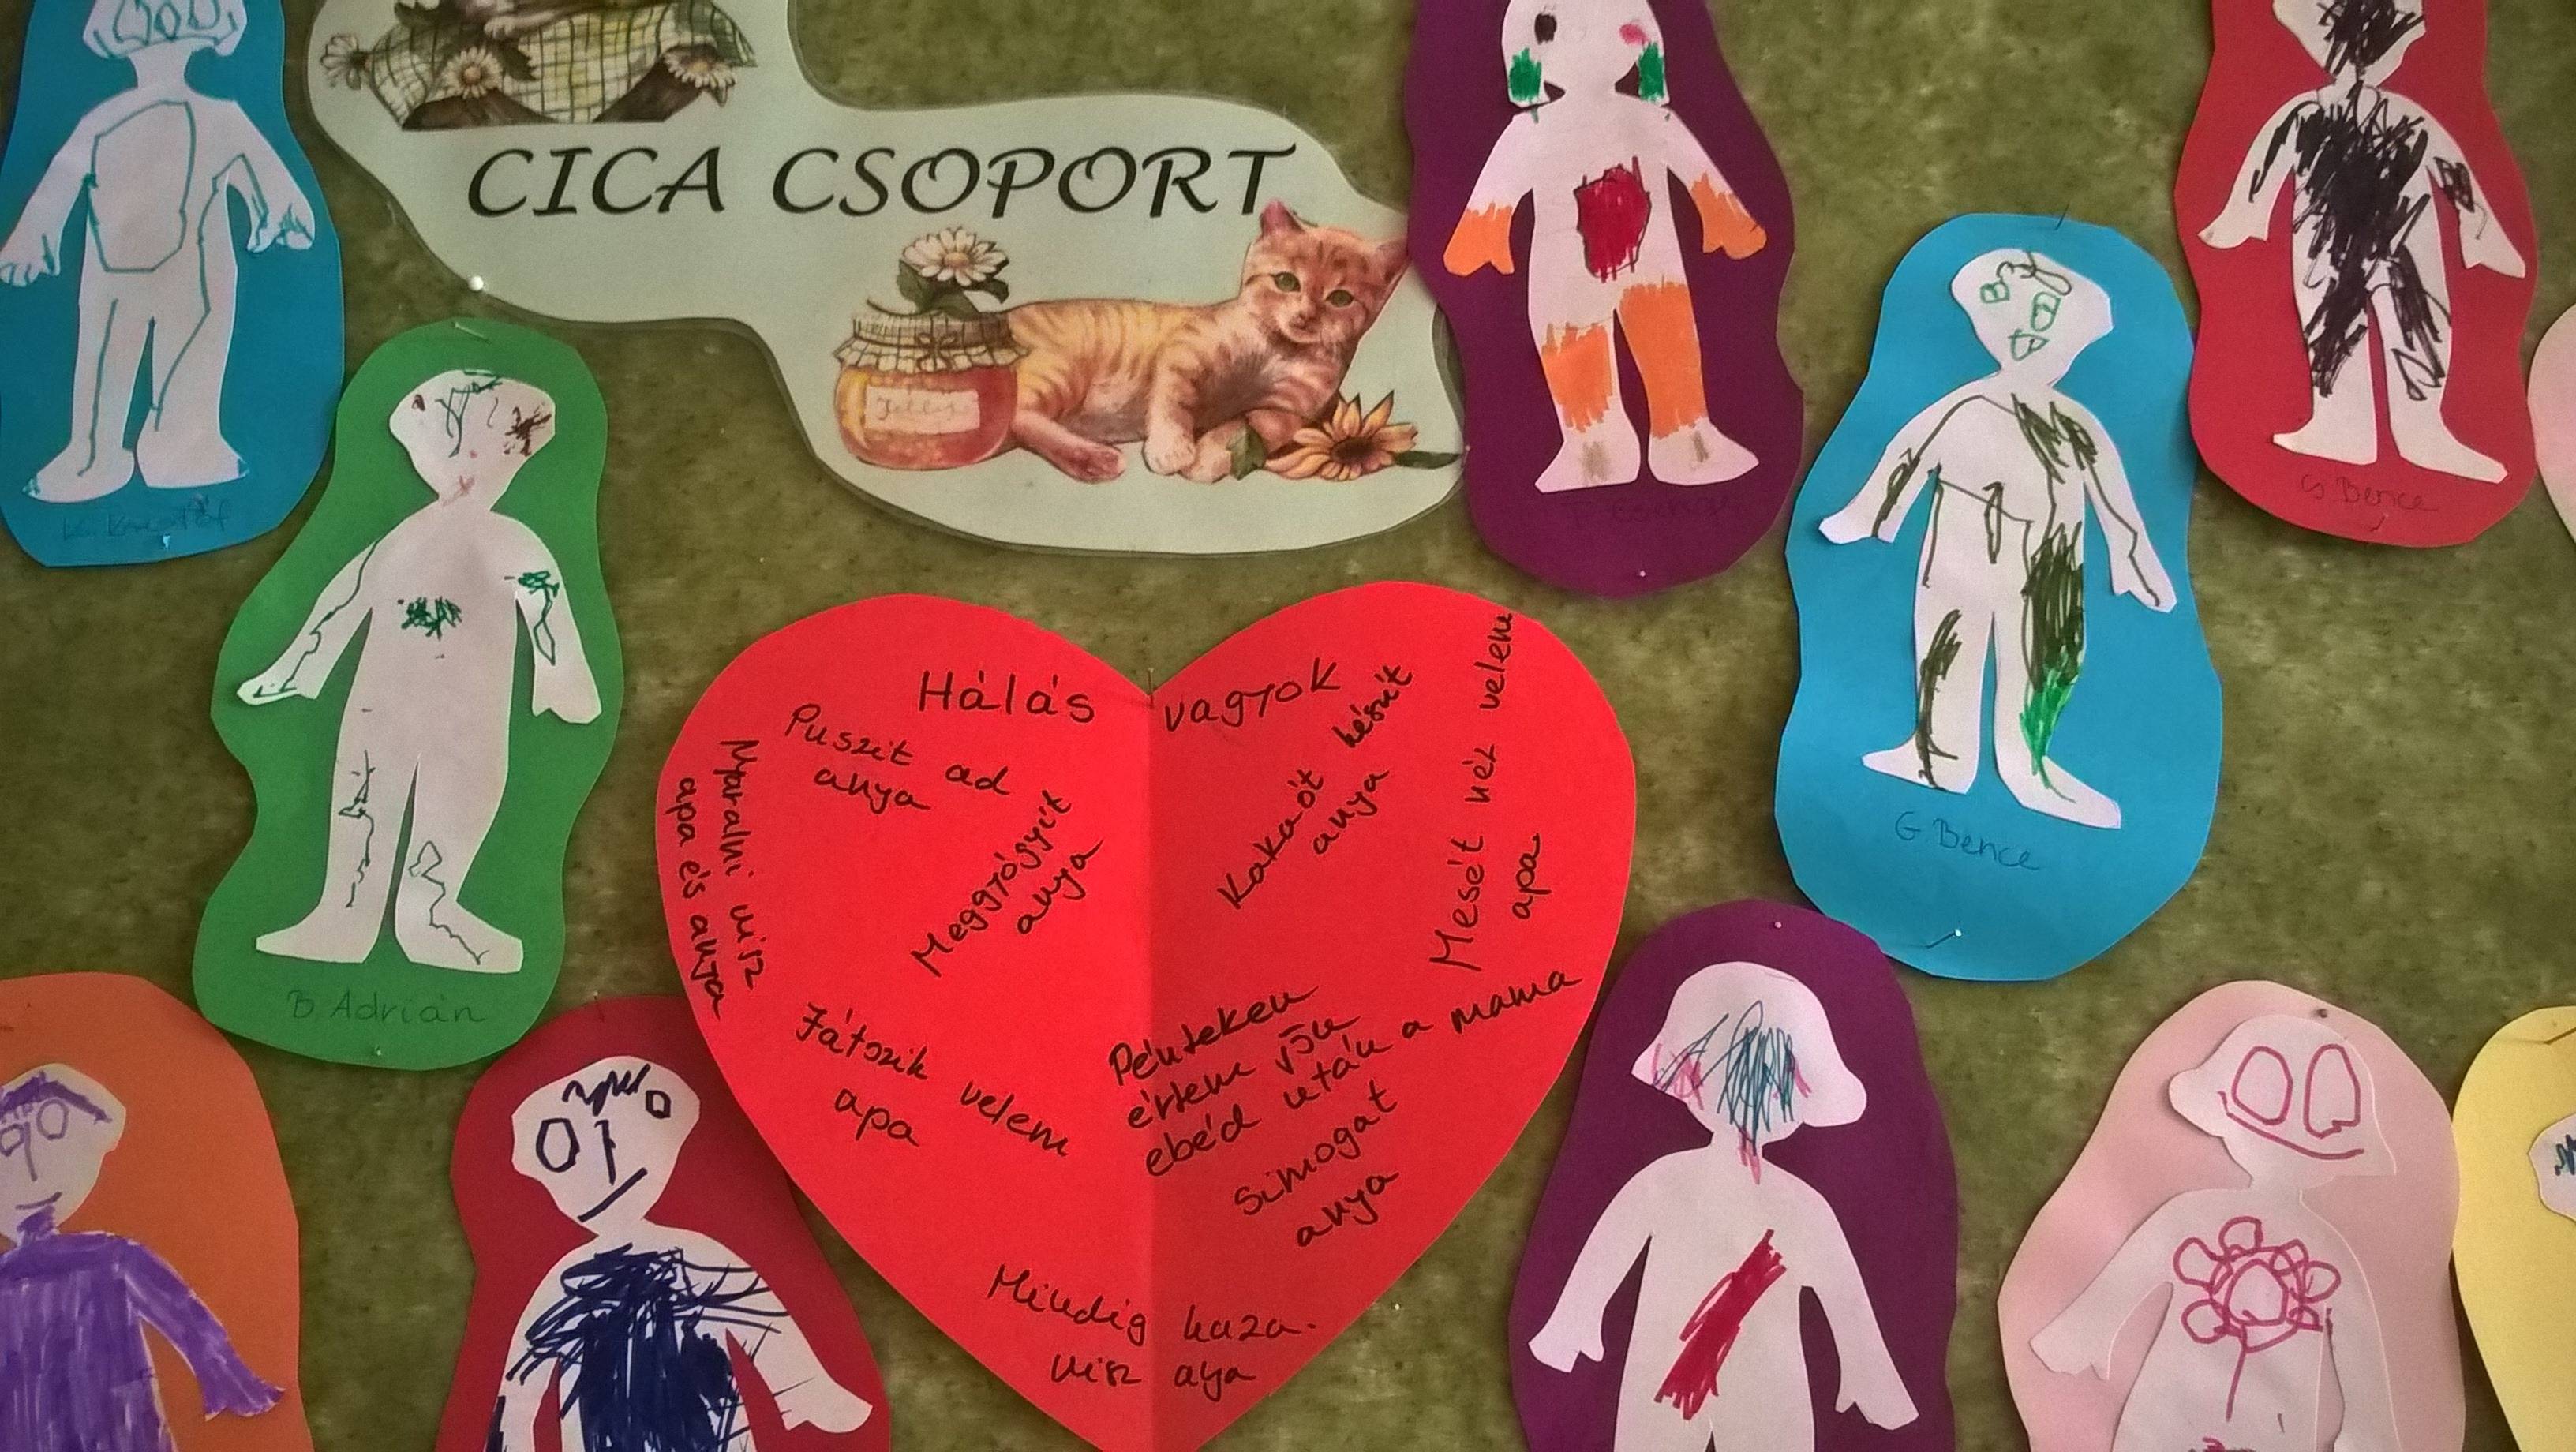 CICA CSOPORT
Jelly
K. Kristóf
G. Bence
G. Bence
B. Adrián
Hálás vagyok
Puszit ad
anya
Nyaralni visz
apa és anya
Meggyógyít
anya
Kakaót készít
anya
Mesét néz velem
apa
Játszik velem
apa
Pénteken
értem jön
ebéd után a mama
Simogat
anya
Mindig haza.
visz aya